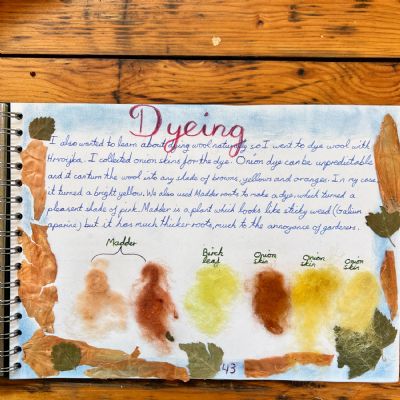 Dyeing
I also wanted to learn about dying wool naturally so I went to dye wool with
Hrvojka. I collected onion skins for the dye. Onion dye can be unpredictable
and it can turn the wool into any shade of browns, yellows and oranges. In my case
it turned a bright yellow. We also used Madder roots to make a dye, which turned a
pleasent shade of pink. Madder is a plant which looks like sticky weed (Galium
aparine) but it has much thicker roots, much to the annoyance of gardeners.
Madder
Birch
leaf
Onion
skin
Onion
skin
Onion
skin
43